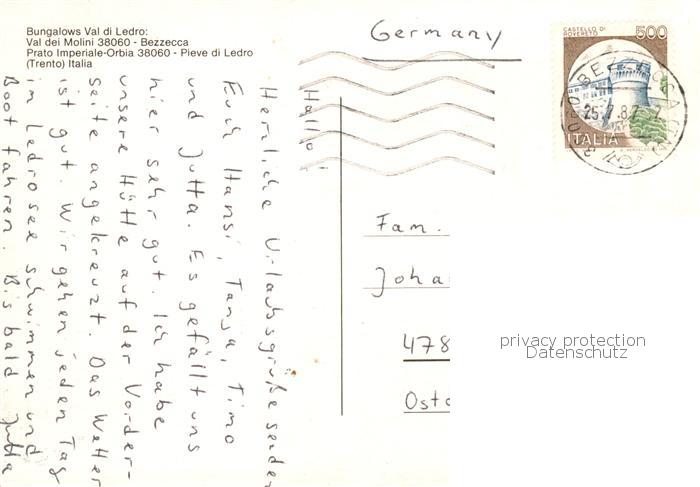 Bungalows Val di Ledro:
Val dei Molini 38060 - Bezzecca
Prato Imperiale-Orbia 38060 - Pieve di Ledro
(Trento) Italia
Hallo!
Herrliche Urlaubsgrüße senden
Euch Hansi, Tanja, Timo
und Jutta. Es gefällt uns
hier sehr gut. Ich habe
unsere Hütte auf der Vorder-
seite angekreuzt. Das Wetter
ist gut. Wir gehen jeden Tag
im Ledrosee schwimmen und
Boot fahren. Bis bald Jutta
Germany
CASTELLO DI
ROVERETO
500
ITALIA
BEZZECCA
25.7.87
Fam.
Joha
478
Oste
privacy protection
Datenschutz